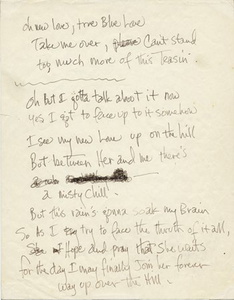 oh new Love, true Blue Love
Take me over, Can't stand
too much more of this Teasin'.
oh But I gotta talk about it now
yes I got to face up to it somehow
I see my new Love up on the hill
But between Her and me there's
a misty chill.
But this rain's gonna soak my Brain
So As I try to face the throth of it all,
Hope and pray that She waits
for the day I may finally Join her forever
way up over the Hill.